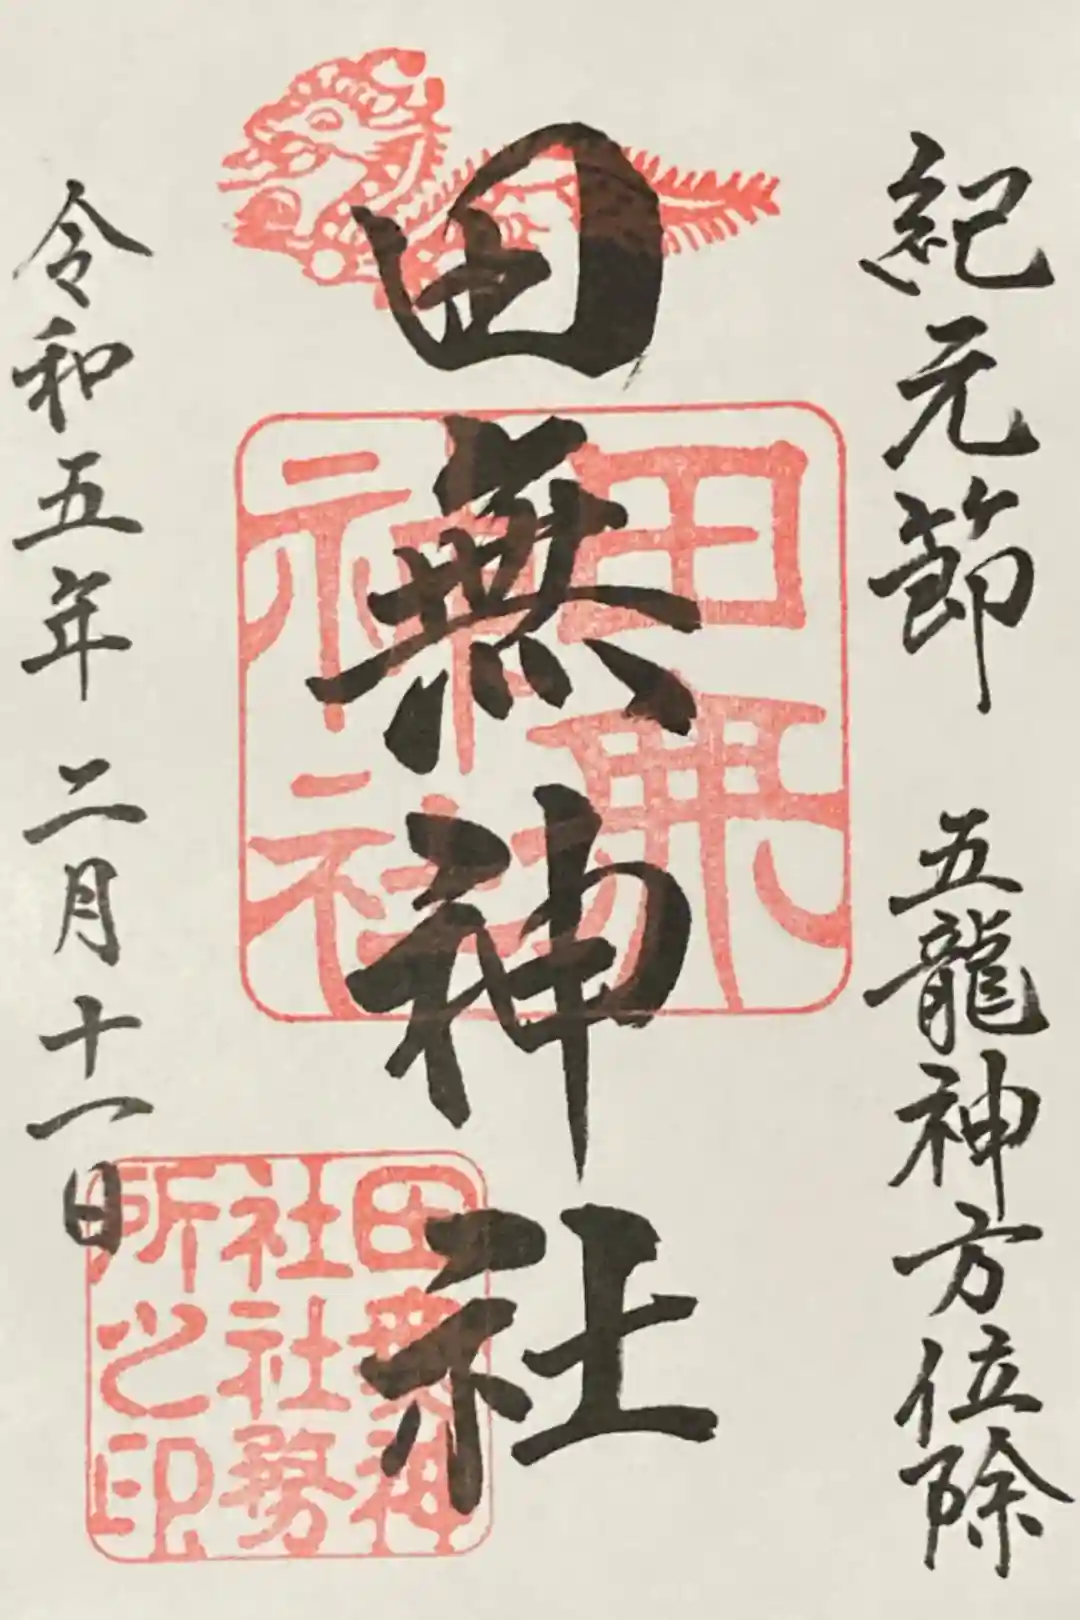 紀元節 五龍神方位除
田無神社
令和五年二月十一日
田無
神社
田無神
社社務
所之印